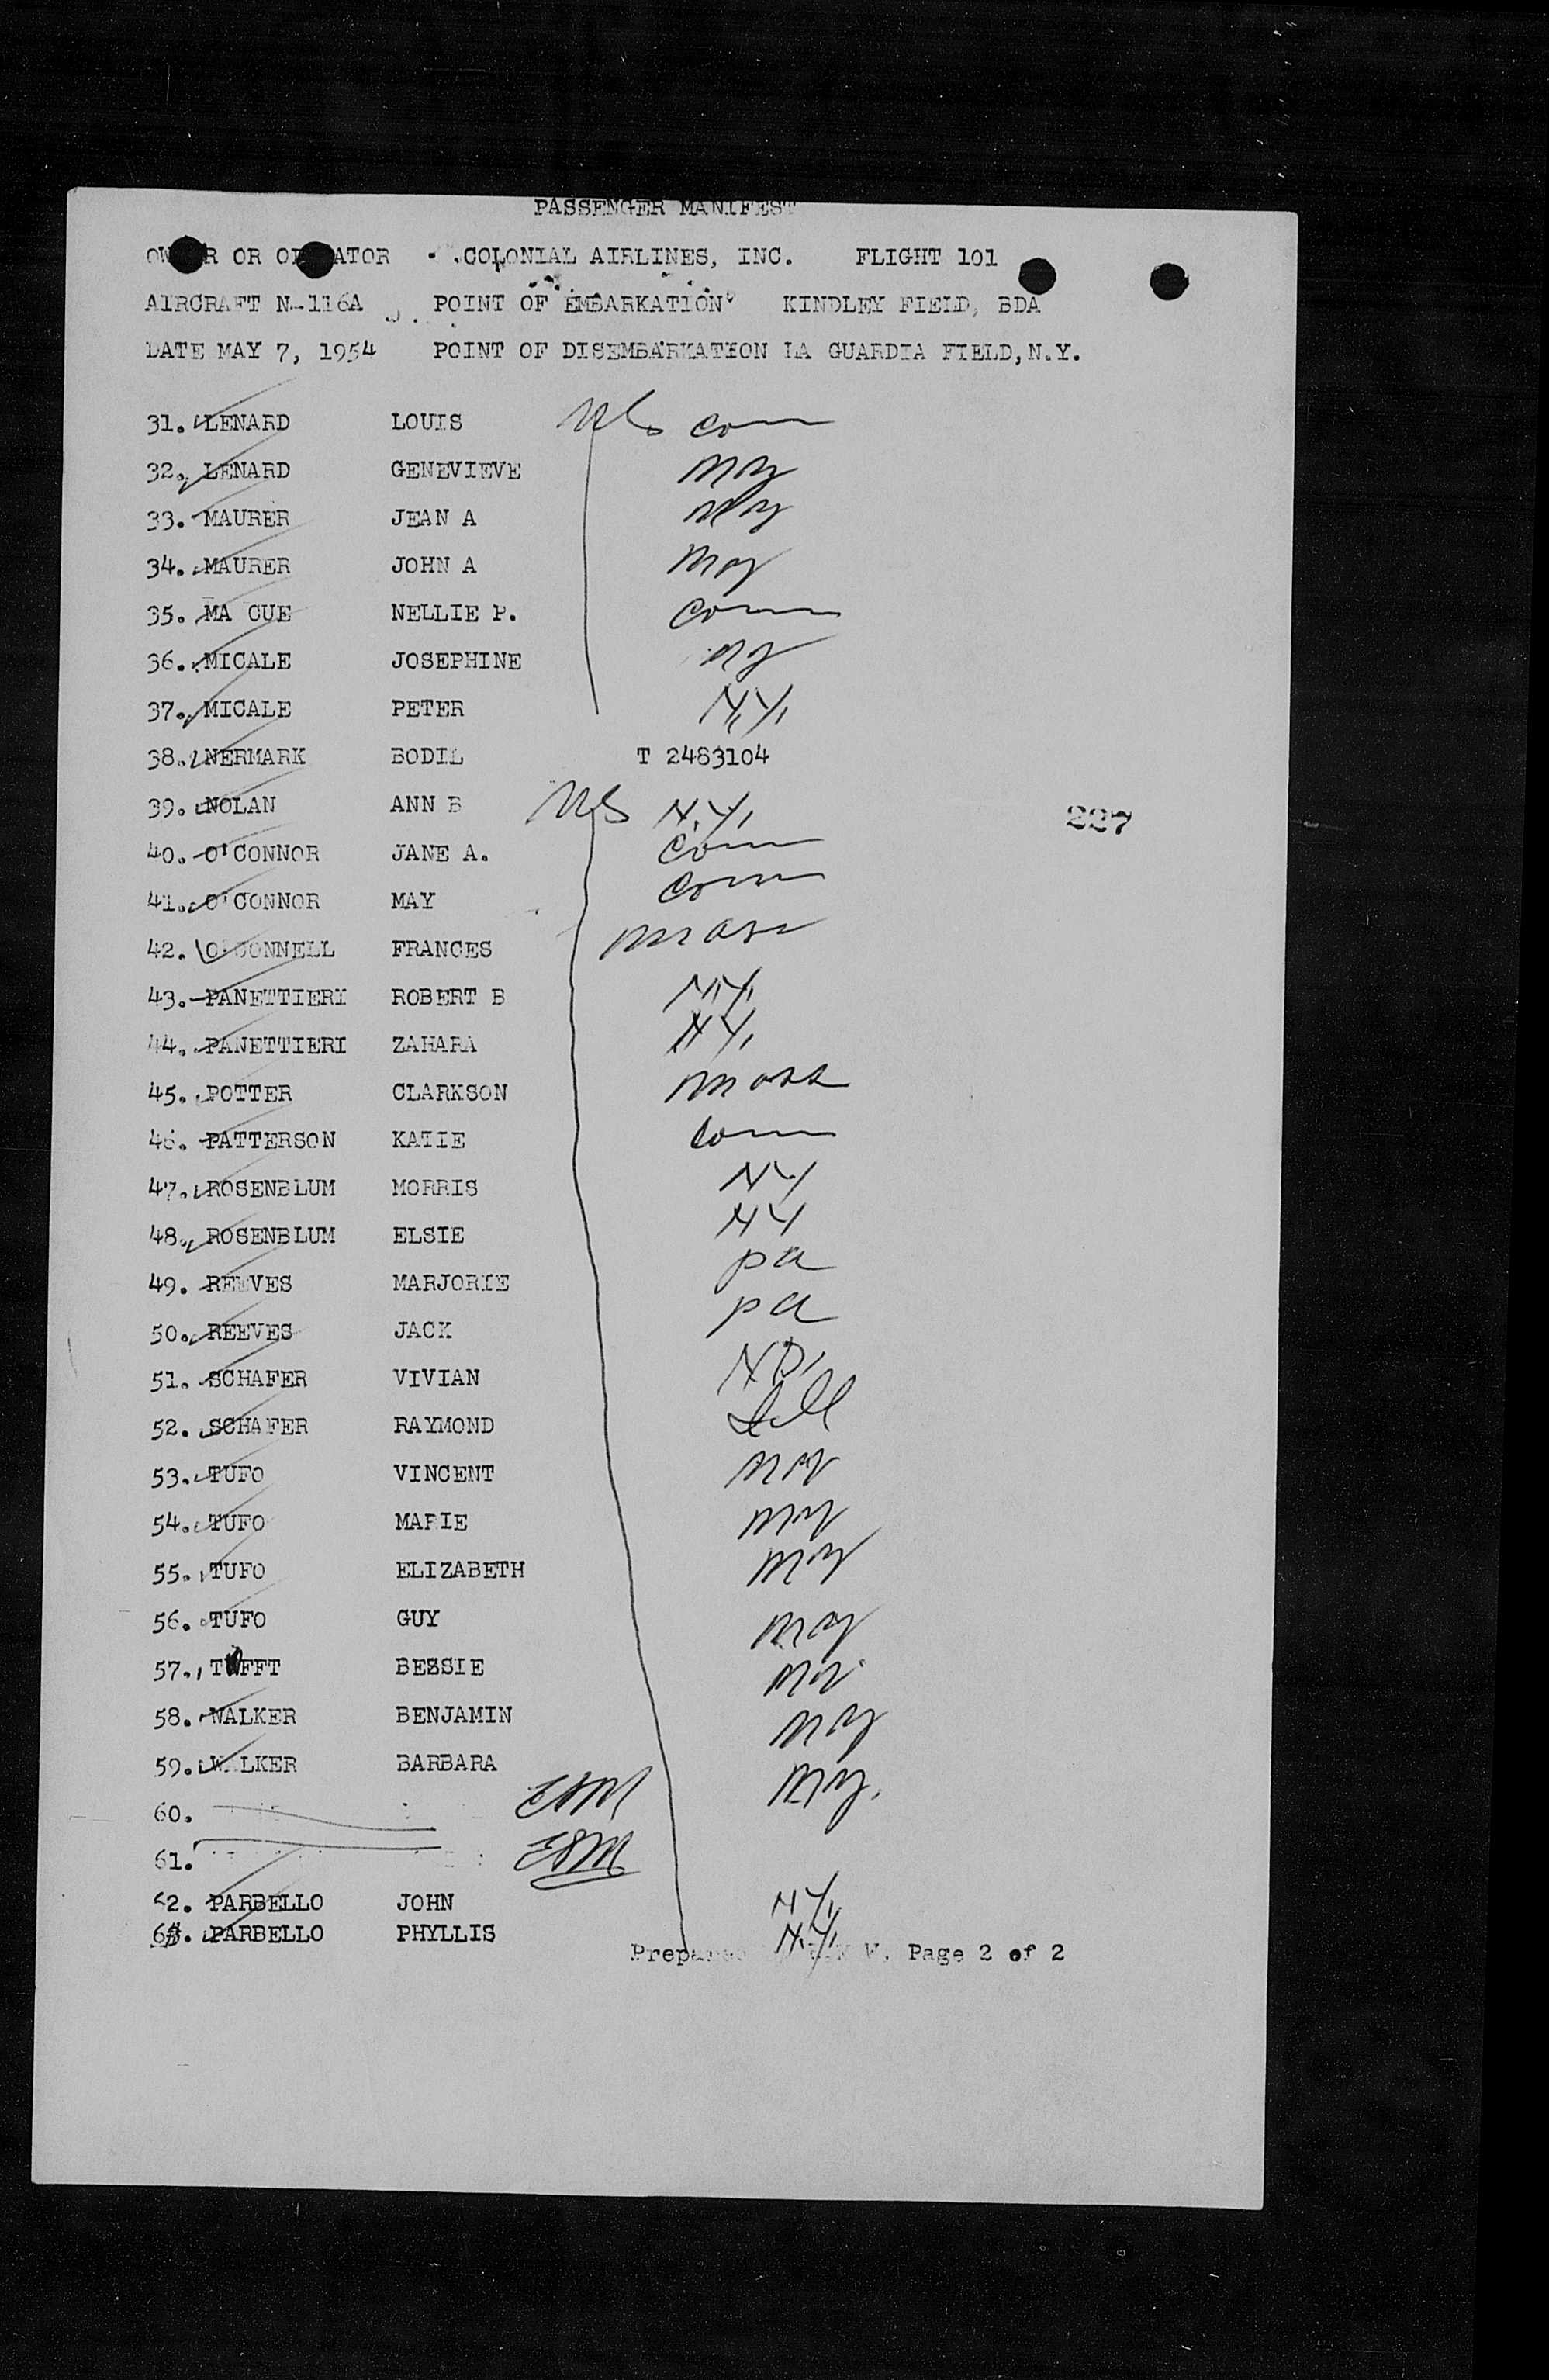 PASSENGER MANIFEST
OR COLONIAL AIRLINES, INC. FLIGHT 101
AIRCRAFT N-116A POINT OF EMBARKATION KINDLEY FIELD, BDA
DATE MAY 7, 1954 POINT OF DISEMBARKATION LA GUARDIA FIELD, N.Y.
31. LENARD LOUIS US Conn
32. LENARD GENEVIEVE NY
33. MAURER JEAN A NY
34. MAURER JOHN A NY
35. MA CUE NELLIE P. Conn
36. MICALE JOSEPHINE NY
37. MICALE PETER N.Y.
38. NERMARK BODIL T 2483104
39. NOLAN ANN B US N.Y.
227
40. O'CONNOR JANE A. Conn
41. O'CONNOR MAY Conn
42. O'CONNELL FRANCES Mass
43. PANETTIERI ROBERT B N.Y.
44. PANETTIERI ZAHARA N.Y.
45. POTTER CLARKSON Mass
46. PATTERSON KATIE Conn
47. ROSENBLUM MORRIS NY
48. ROSENBLUM ELSIE NY
49. REEVES MARJORIE Pa
50. REEVES JACK Pa
51. SCHAFER VIVIAN N.D.
52. SCHAFER RAYMOND Ill
53. TUFO VINCENT NY
54. TUFO MARIE NY
55. TUFO ELIZABETH NY
56. TUFO GUY NY
57. BESSIE NY
58. WALKER BENJAMIN NY
59. WALKER BARBARA NY.
60. ESM
61. ESM
62. PARBELLO JOHN N.Y.
63. PARBELLO PHYLLIS N.Y.
Page 2 of 2